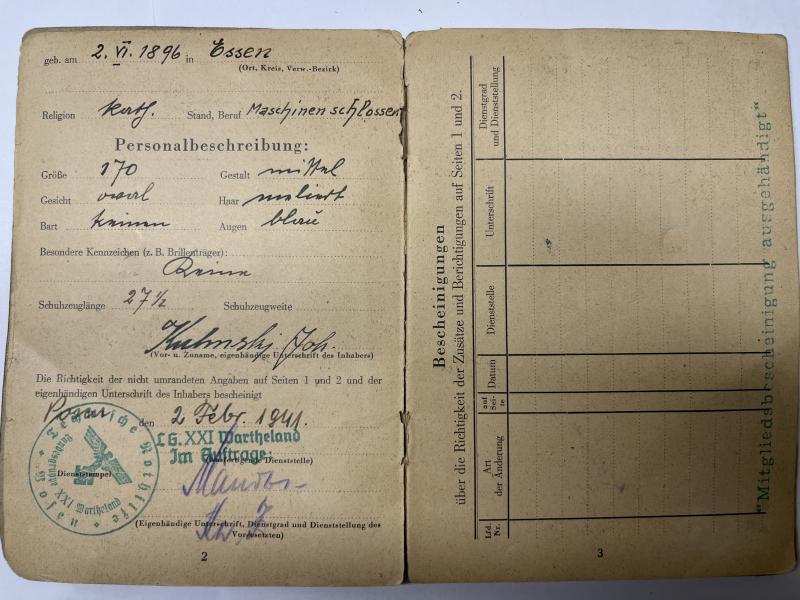 geb. am 2. VI. 1896 in Essen
(Ort, Kreis, Verw.-Bezirk)
Religion kath. Stand, Beruf Maschinenschlosser
Personalbeschreibung:
Größe 170 Gestalt mittel
Gesicht oval Haar meliert
Bart keinen Augen blau
Besondere Kennzeichen (z. B. Brillenträger):
Keine
Schuhzeuglänge 27½ Schuhzeugweite
Joh.
(Vor- u. Zuname, eigenhändige Unterschrift des Inhabers)
Die Richtigkeit der nicht umrandeten Angaben auf Seiten 1 und 2 und der
eigenhändigen Unterschrift des Inhabers bescheinigt
Posen den 2. Febr. 1941.
LG. XXI Wartheland
Im Auftrage:
(Ausfertigende Dienststelle)
Dienststempel
Technische Nothilfe
Posen
XXI Wartheland
(Eigenhändige Unterschrift, Dienstgrad und Dienststellung des
Vorgesetzten)
2
Bescheinigungen
über die Richtigkeit der Zusätze und Berichtigungen auf Seiten 1 und 2.
Lfd. Nr.
Art der Änderung
auf Seite
Datum
Dienststelle
Unterschrift
Dienstgrad und Dienststellung
"Mitgliedsbescheinigung ausgehändigt"
3